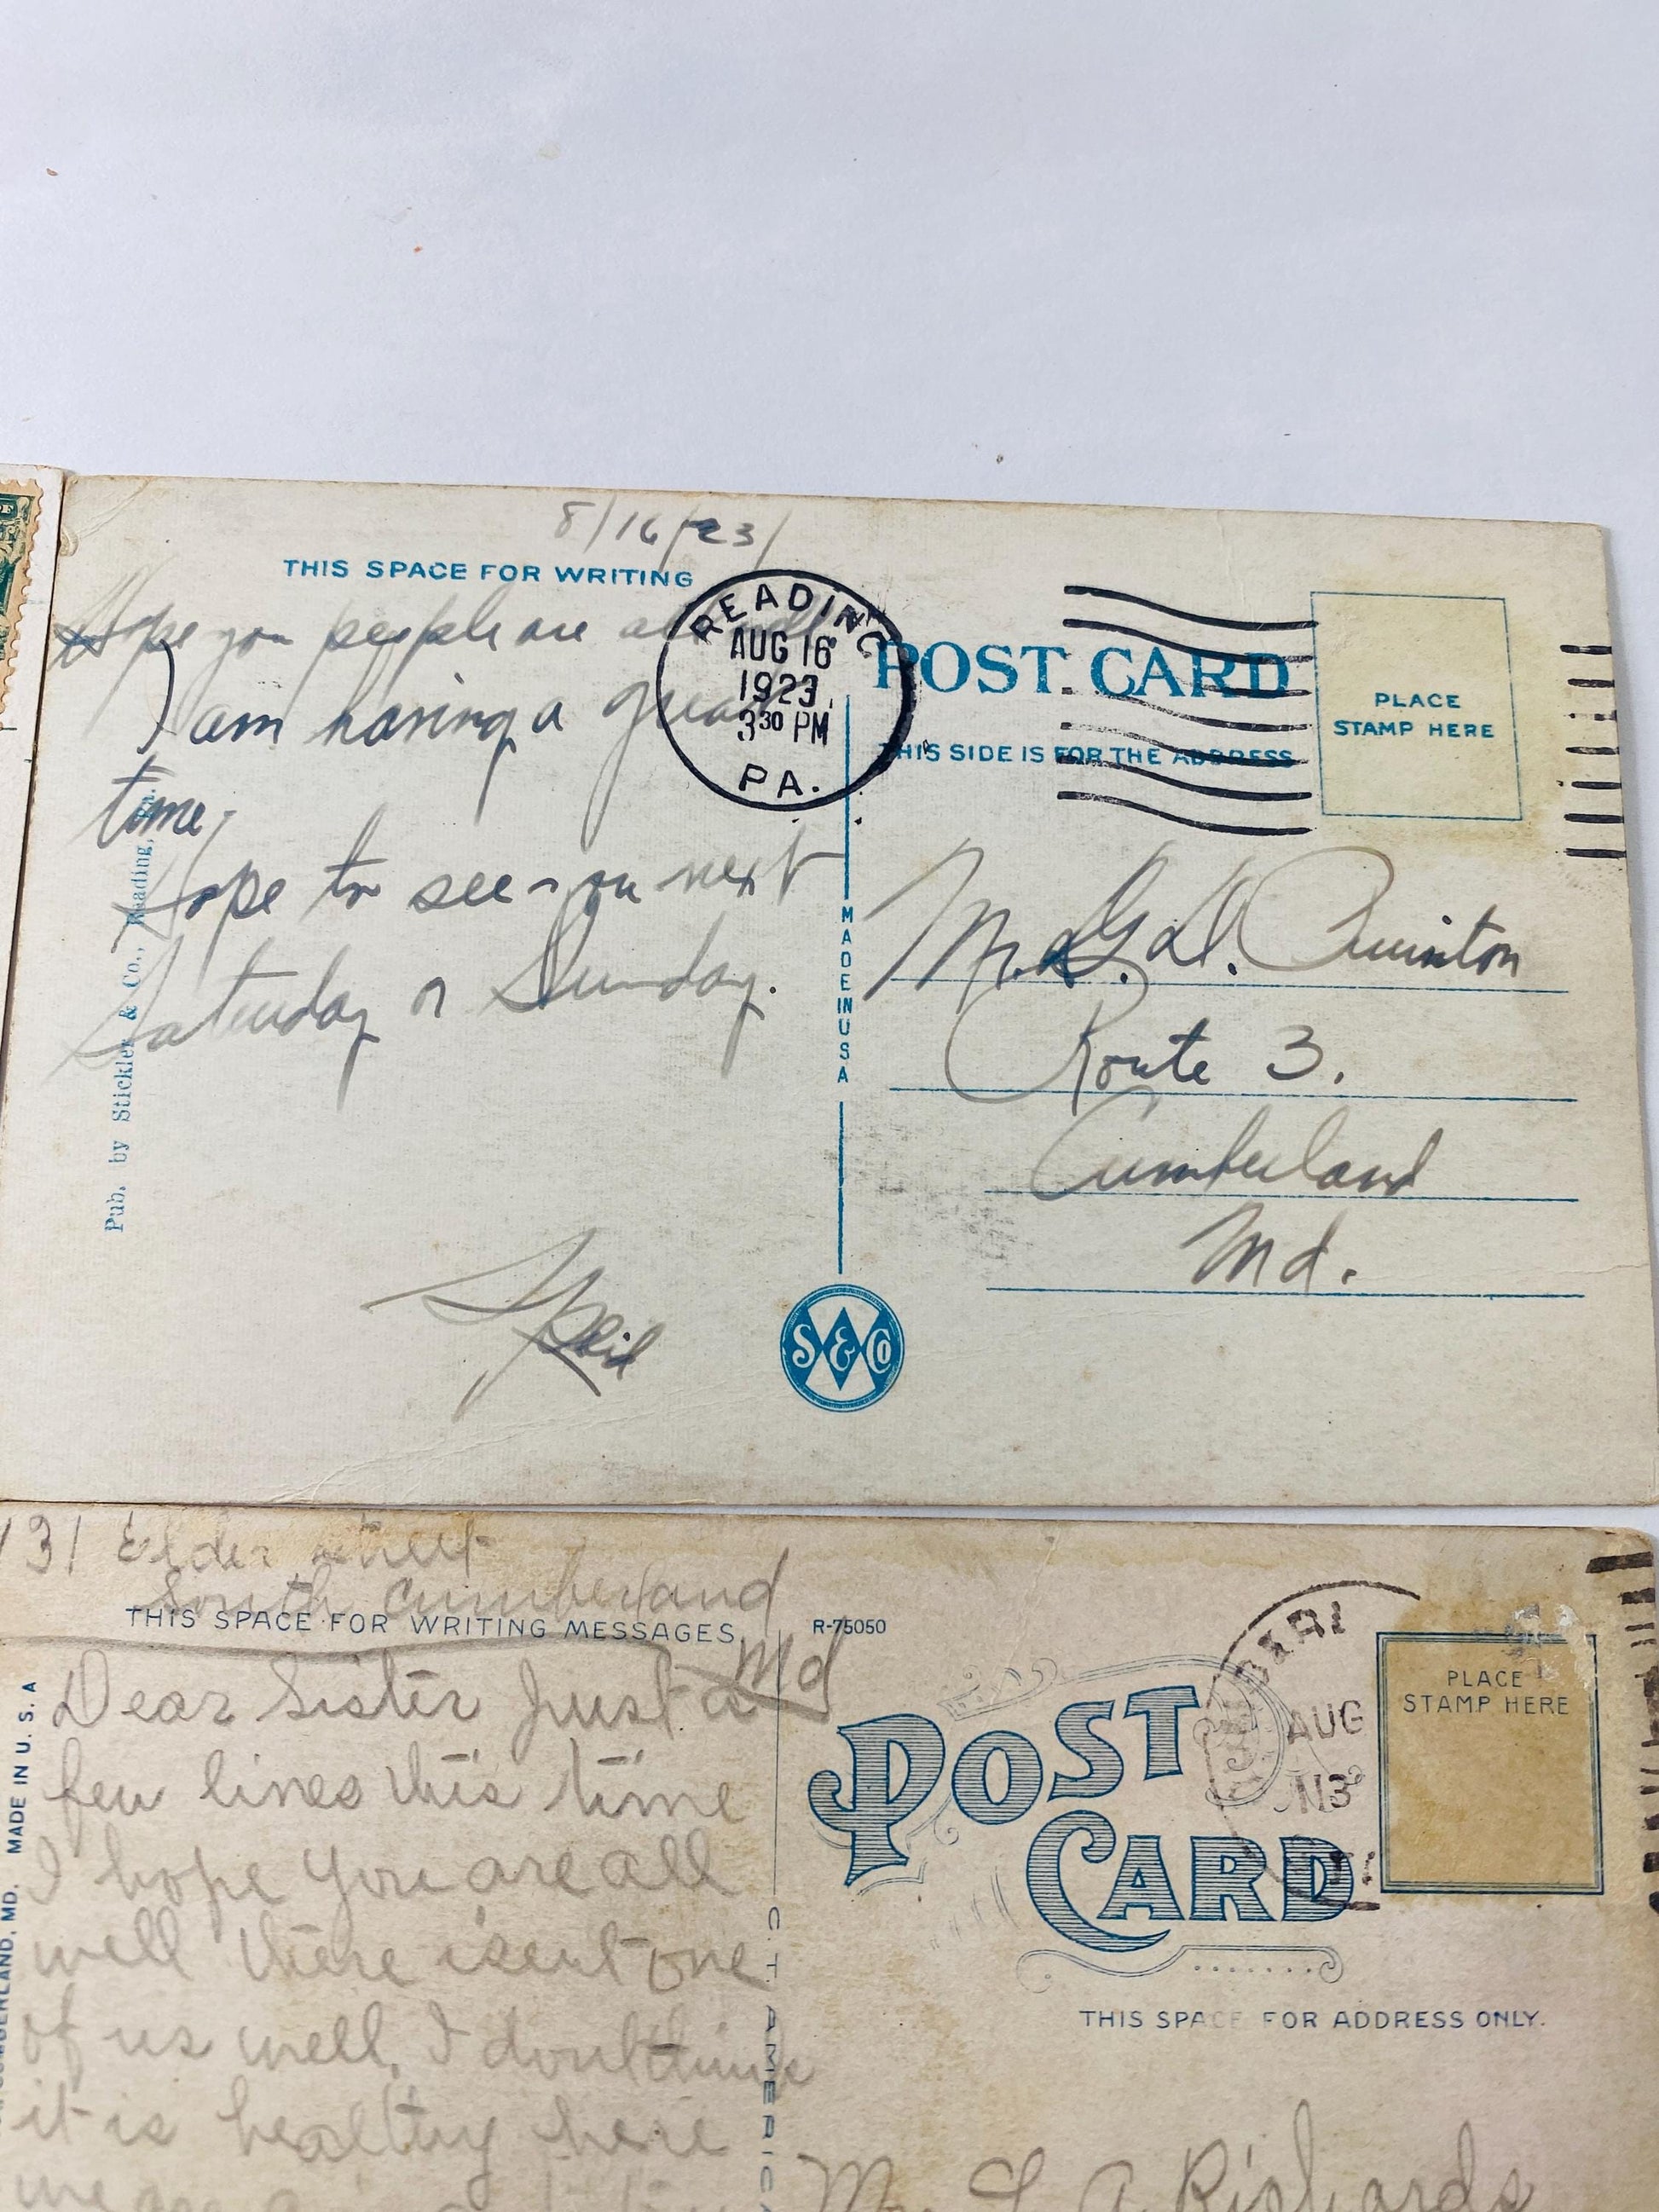 8/16/23/
THIS SPACE FOR WRITING
Hope you people are all well
I am having a great
time,
Hope to see you next
Saturday or Sunday.
Pub. by Stickler & Co., Reading, Pa.
READING
AUG 16
1923
3³⁰ PM
PA.
POST CARD
THIS SIDE IS FOR THE ADDRESS
PLACE
STAMP HERE
MADE IN U S A
Route 3.
Cumberland
Md.
S & Co
131 Elder street
South Cumberland
Md
THIS SPACE FOR WRITING MESSAGES
R-75050
Dear Sister Just a
few lines this time
I hope you are all
well there isent one
of us well, I dont think
it is healthy here
we are
CUMBERLAND, MD. MADE IN U.S.A
C.T. AMERICA
POST
CARD
AUG
PLACE
STAMP HERE
THIS SPACE FOR ADDRESS ONLY.
A Richards